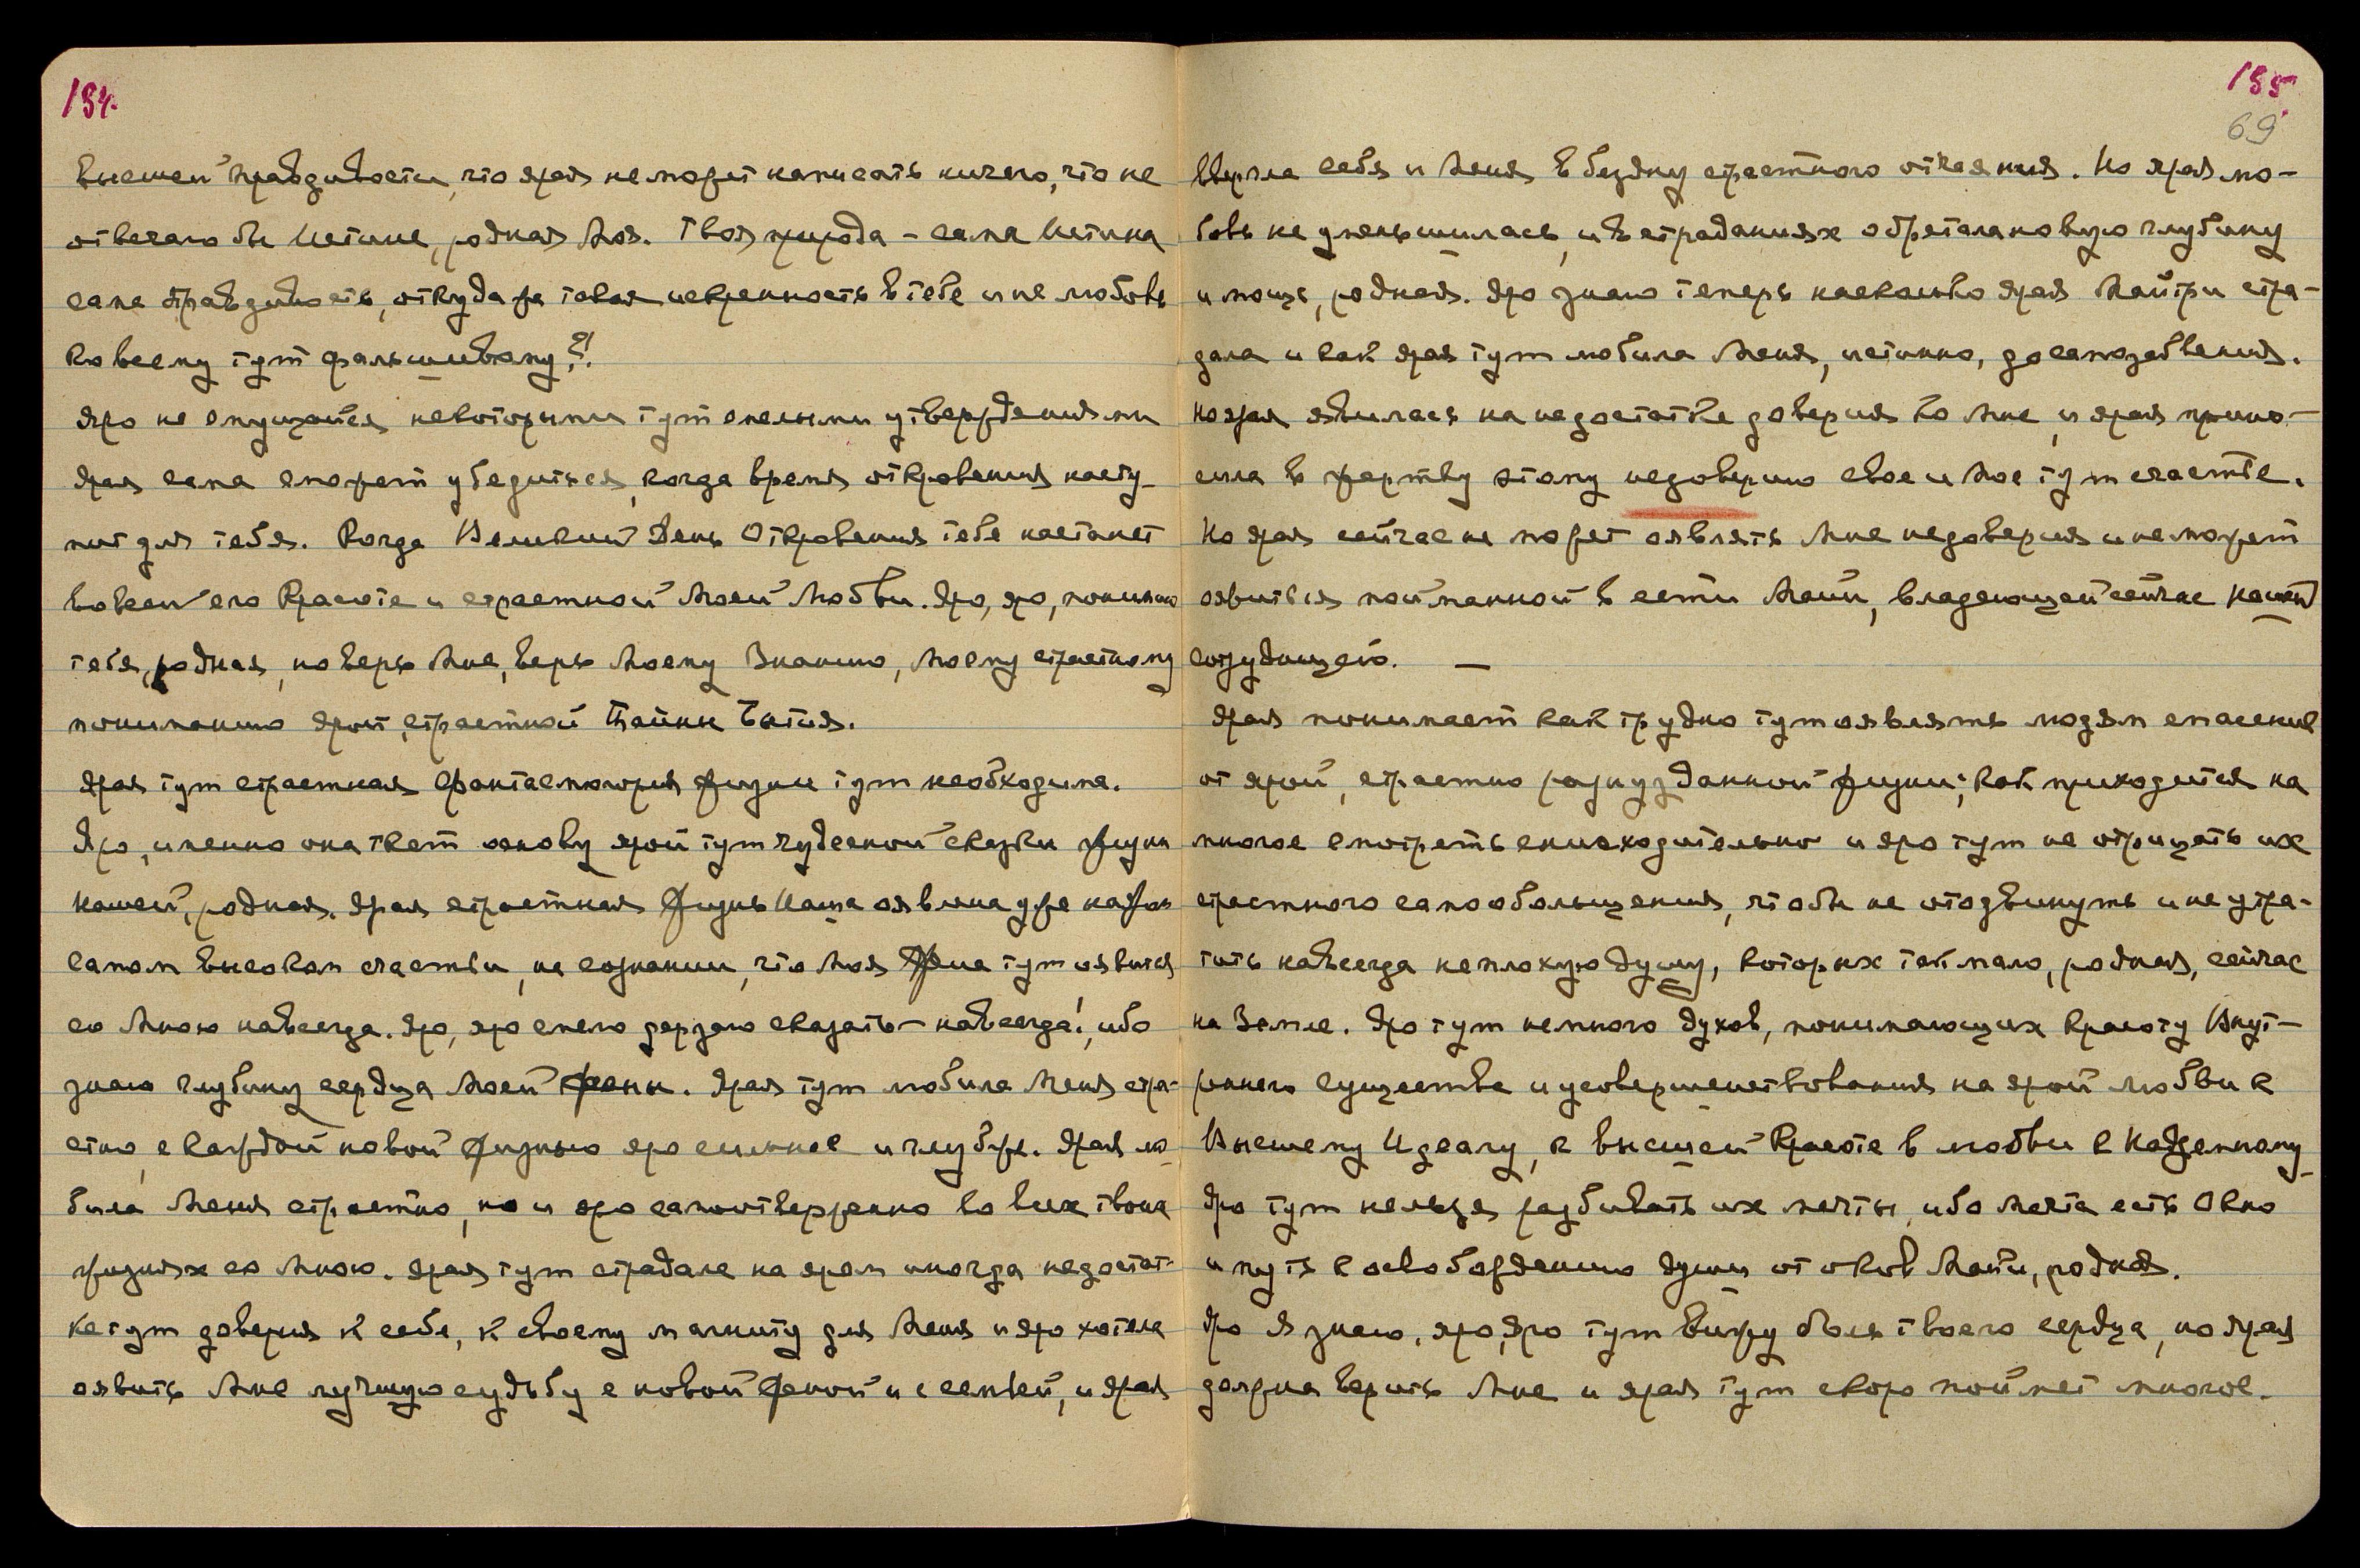 134.
высшей правдивости, что ярая не может написать ничего, что не
отвечало бы Истине, родная Моя. Твоя природа – сама Истина
сама Правдивость, откуда же такая искренность в тебе и не любовь
ко всему тут фальшивому?!
Яро не смущайся некоторыми тут смелыми утверждениями
Ярая сама сможет убедиться, когда время откровения насту-
пит для тебя. Когда Великий День Откровения тебе настанет
во всей его Красоте и страстной Моей Любви. Яро, яро, понимаю
тебя, родная, но верь Мне, верь Моему Знанию, Моему страстному
пониманию ярой, страстной Тайны Бытия.
Ярая тут страстная Фантасмагория жизни тут необходима.
Яро, именно она ткет основу ярой тут чудесной сказки жизни
нашей, родная. Ярая страстная Жизнь Наша оявлена уже на
самом высоком счастьи, на сознании, что Моя тут оявится
со Мною навсегда. Яро, яро смело дерзаю сказать – навсегда!, ибо
знаю глубину сердца Моей Жены. Ярая тут любила Меня стра-
стно, с каждой новой жизнью яро сильнее и глубже. Ярая лю-
била Меня страстно, но и яро самоотверженно во всех твоих
жизнях со Мною. Ярая тут страдала на яром иногда недостат-
ке тут доверия к себе, к своему магниту для Меня и яро хотела
оявить Мне лучшую судьбу с новой Женой и с семьей, и ярая
135.
69
ввергла себя и Меня в бездну страстного отчаяния. Но ярая лю-
бовь не уменьшилась, и в страданиях обретала новую глубину
и мощь, родная. Яро знаю теперь насколько ярая Майтри стра-
дала и как ярая тут любила Меня, истинно, до самозабвения.
Но ярая явилась на недостатке доверия ко Мне, и ярая прино-
сила в жертву этому недоверию свое и Мое тут счастье.
Но ярая сейчас не может оявлять Мне недоверия и не может
оявиться пойманной в сети Майи, владеющей сейчас нашей
сотрудницей. —
Ярая понимает как трудно тут оявлять людям спасение
от ярой, страстно разнузданной жизни; как приходится на
многое смотреть снисходительно и яро тут не отрицать их
страстного самообольщения, чтобы не отодвинуть и не утра-
тить навсегда неплохую душу, которых так мало, родная, сейчас
на Земле. Яро тут немного духов, понимающих красоту Внут-
реннего Существа и усовершенствования на ярой любви к
Высшему Идеалу, к высшей Красоте в любви к Надземному
Яро тут нельзя разбивать их мечты, ибо Мечта есть Окно
и путь к освобождению души от оков Майи, родная.
Яро Я знаю, яро, яро тут вижу боль твоего сердца, но ярая
должна верить Мне и ярая тут скоро поймет многое.